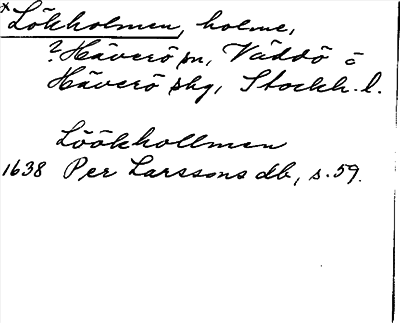 *Lökholmen, holme,
?Häverö sn, Väddö o
Häverö skg, Stockh. l.
Löökhollmen
1638 Per Larssons db, s. 59.